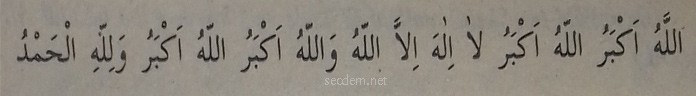 اَللّٰهُ اَكْبَرُ اَللّٰهُ اَكْبَرُ لاٰ اِلٰهَ اِلاَّ اللّٰهُ وَاللّٰهُ اَكْبَرُ اَللّٰهُ اَكْبَرُ وَلِلّٰهِ الْحَمْدُ
secdem.net